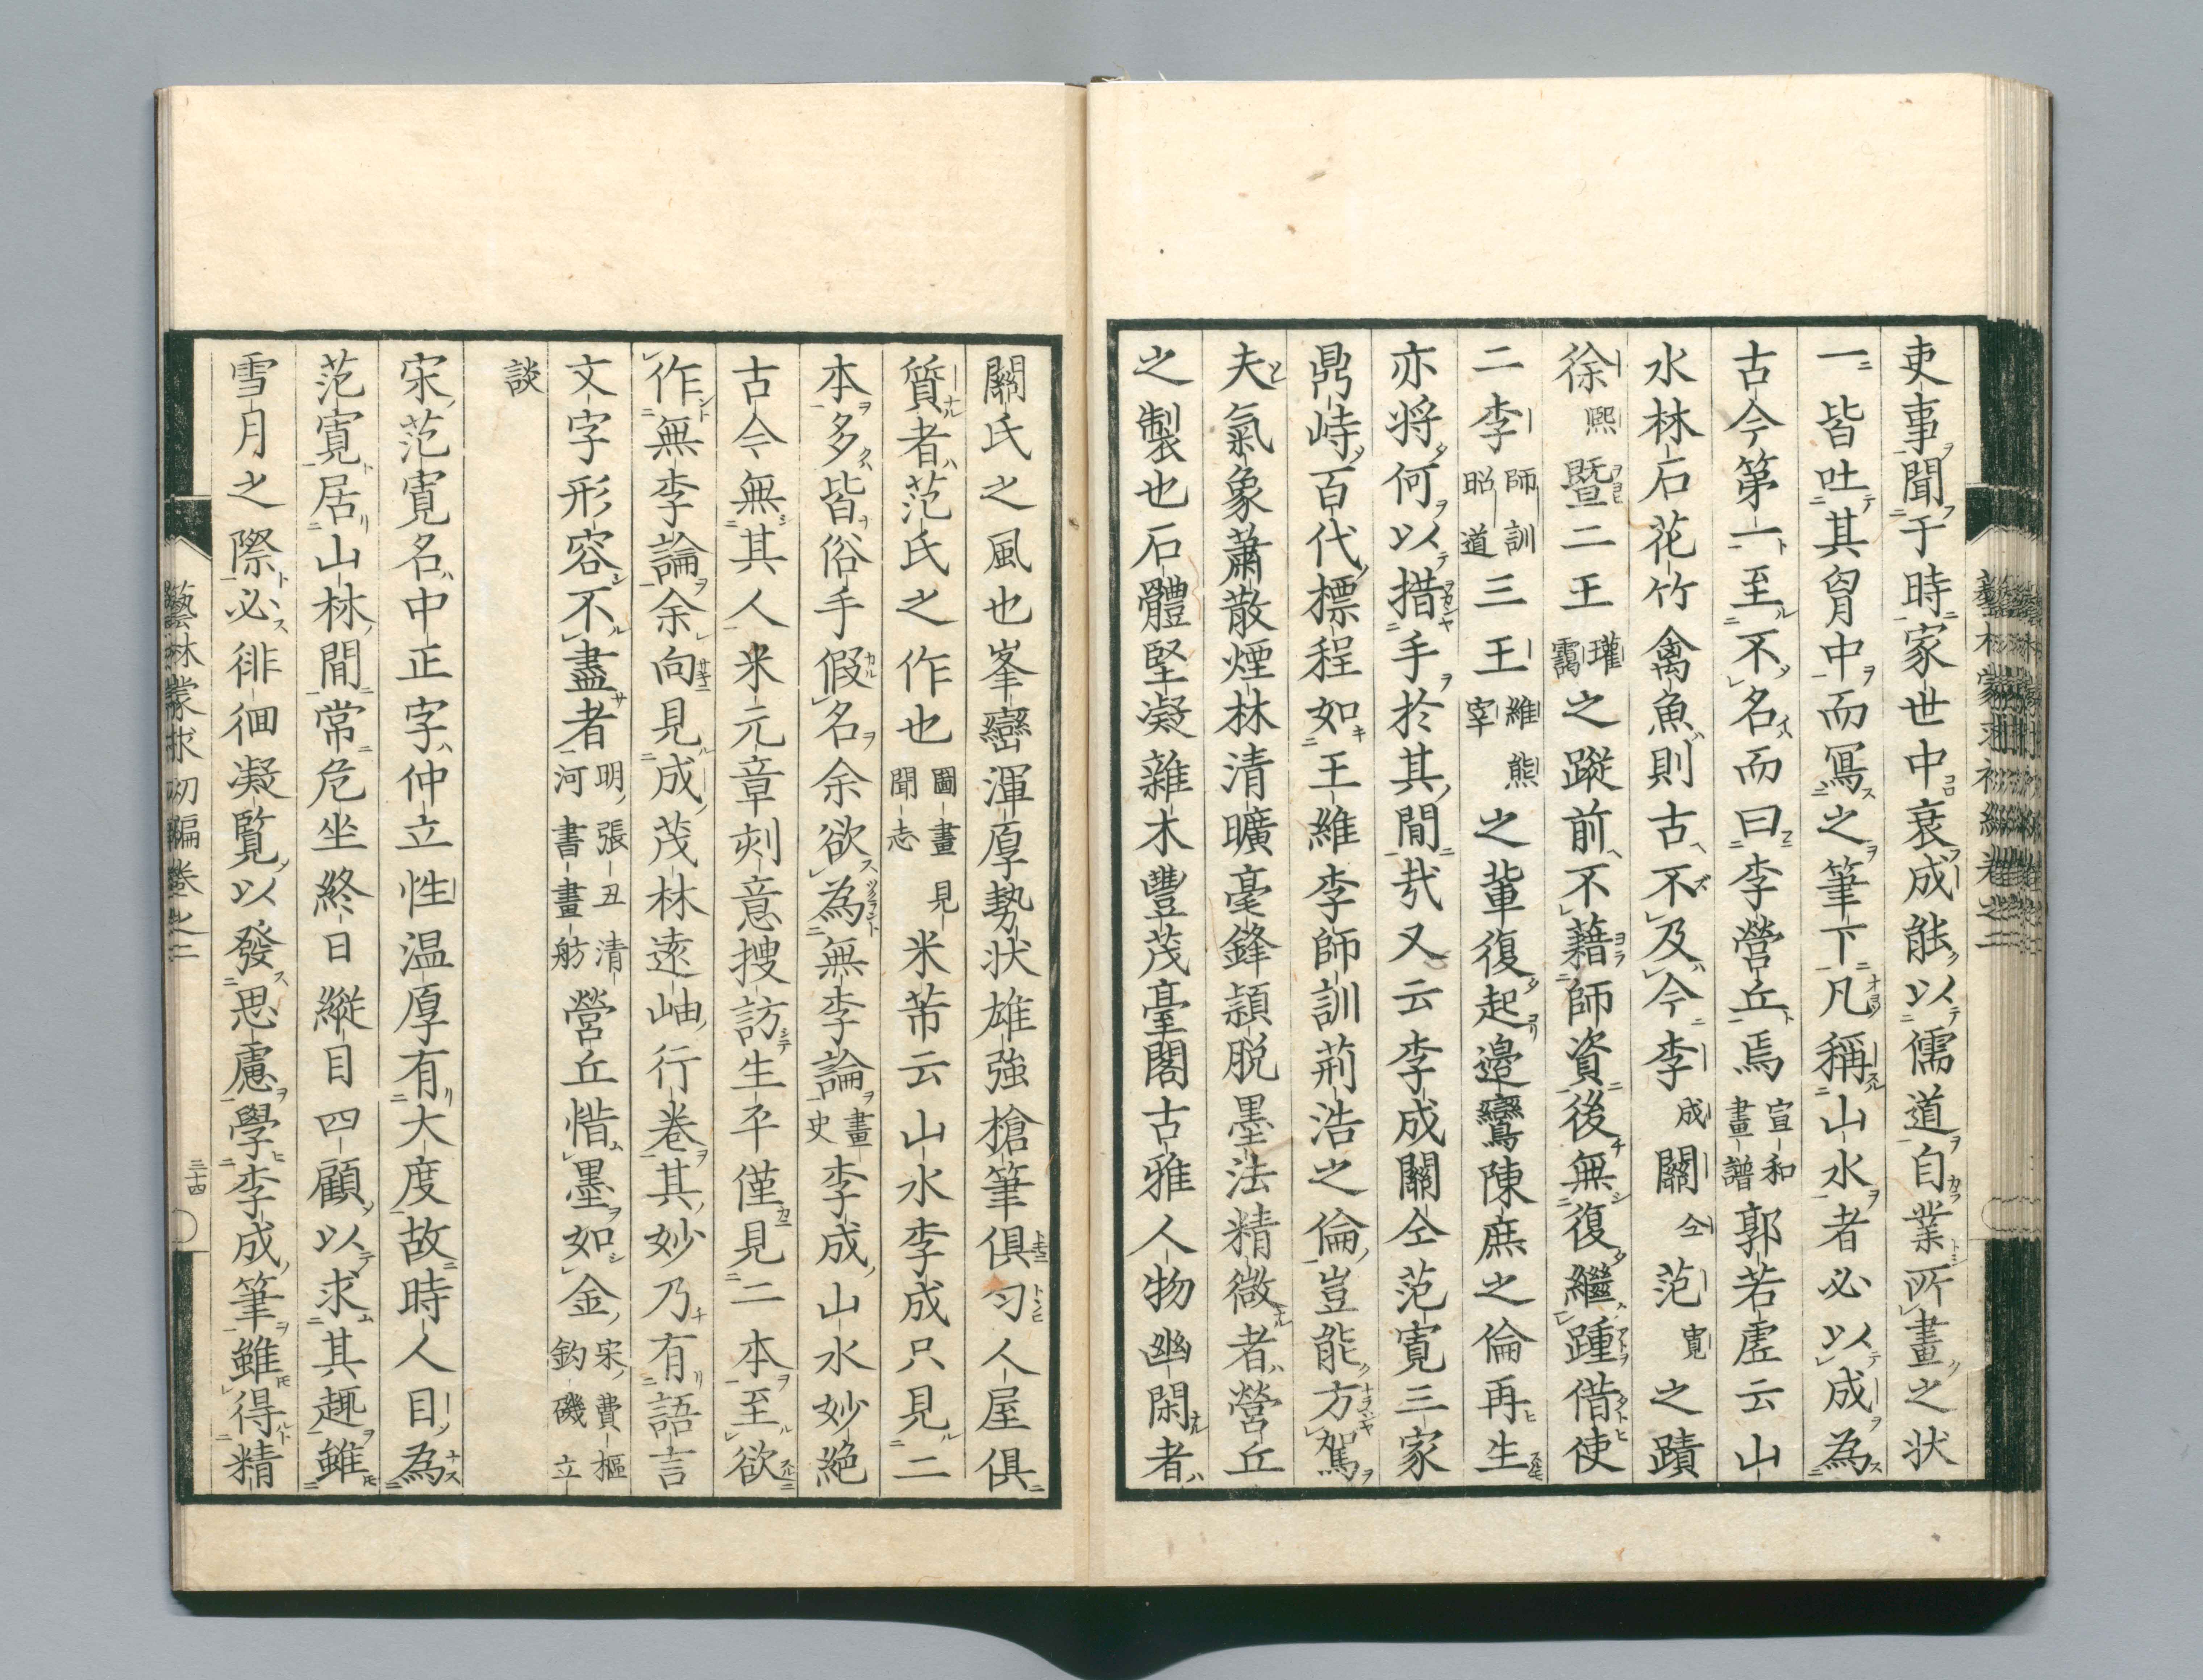 吏事聞于時家世中衰成能以儒道自業所畫之状
一皆吐其胷中而寫之筆下凡稱山水者必以成為
古今第一至不名而曰李營丘焉宣和畫譜郭若虛云山
水林石花竹禽魚則古不及今李成關仝范寬之蹟
徐熙暨二王瓘靄之蹤前不藉師資後無復繼踵借使
二李師訓昭道三王維熊宰之輩復起邉鸞陳庶之倫再生
亦将何以措手於其間㢤又云李成關仝范寬三家
鼎峙百代標程如王維李師訓荊浩之倫豈能方駕
夫氣象蕭散煙林清曠毫鋒頴脱墨法精微者營丘
之製也石體堅凝雜木豐茂臺閣古雅人物幽閑者
關氏之風也峯巒渾厚勢状雄強槍筆俱匀人屋俱
質者范氏之作也圖畫見聞志米芾云山水李成只見二
本多皆俗手假名余欲為無李論畫史李成山水妙絶
古今無其人米元章刻意捜訪生平僅見二本至欲
作無李論余向見成茂林遠岫行巻其妙乃有語言
文字形容不盡者明張丑清河書畫舫營丘惜墨如金宋費樞釣磯立
談
宋范寛名中正字仲立性温厚有大度故時人目為
范寛居山林間常危坐終日縱目四顧以求其趣雖
雪月之際必徘徊凝覧以發思慮學李成筆雖得精
藝林蒙求初編巻之二
三十四